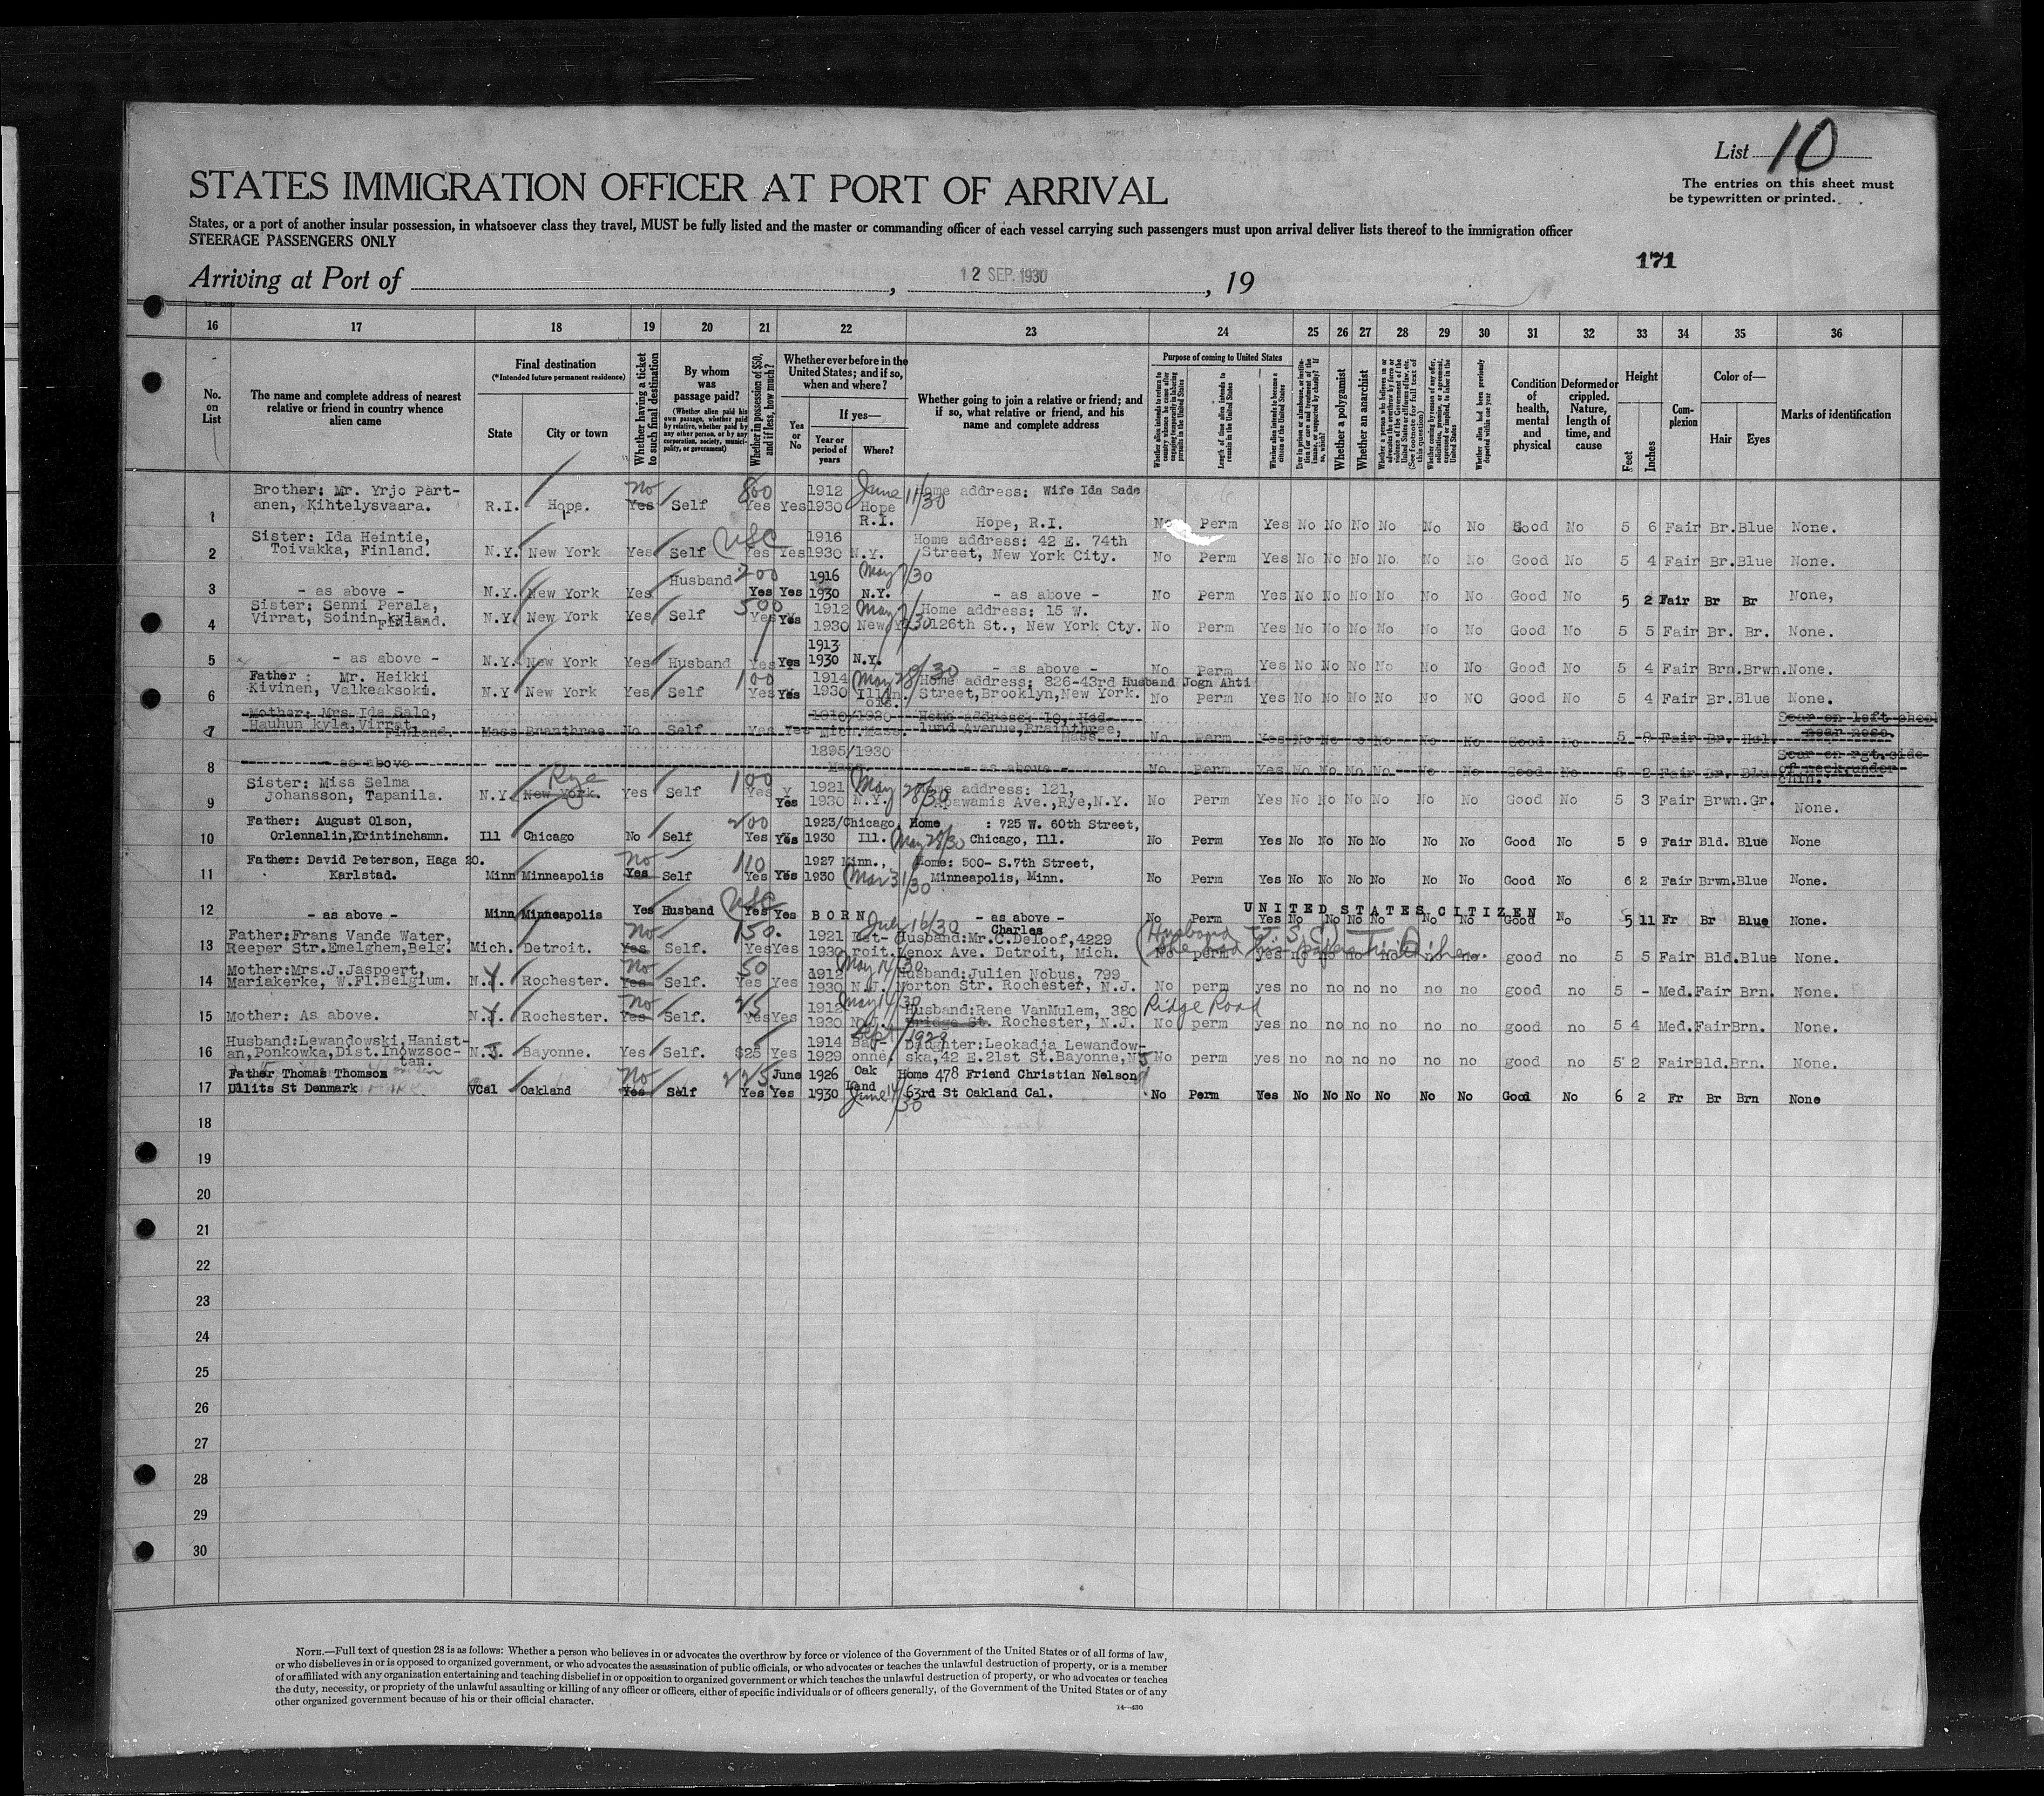 List 10
The entries on this sheet must
be typewritten or printed.
STATES IMMIGRATION OFFICER AT PORT OF ARRIVAL
States, or a port of another insular possession, in whatsoever class they travel, MUST be fully listed and the master or commanding officer of each vessel carrying such passengers must upon arrival deliver lists thereof to the immigration officer
STEERAGE PASSENGERS ONLY
171
Arriving at Port of , 12 SEP. 1930 , 19
16 17 18 19 20 21 22 23 24 25 26 27 28 29 30 31 32 33 34 35 36
No. on List
The name and complete address of nearest relative or friend in country whence alien came
Final destination
(*Intended future permanent residence)
State
City or town
Whether having a ticket to such final destination
By whom was passage paid?
(Whether alien paid his own passage, whether paid by relative, whether paid by any other person, or by any corporation, society, municipality, or government)
Whether in possession of $50, and if less, how much?
Whether ever before in the United States; and if so, when and where?
Yes or No
If yes—
Year or period of years
Where?
Whether going to join a relative or friend; and if so, what relative or friend, and his name and complete address
Purpose of coming to United States
Whether alien intends to return to country whence he came after engaging temporarily in laboring pursuits in the United States
Length of time alien intends to remain in the United States
Whether alien intends to become a citizen of the United States
Ever in prison or almshouse, or institution for care and treatment of the insane, or supported by charity? If so, which?
Whether a polygamist
Whether an anarchist
(See footnote for full text of this question)
Whether coming by reason of any offer, solicitation, promise, or agreement, expressed or implied, to labor in the United States
Whether alien had been previously deported within one year
Condition of health, mental and physical
Deformed or crippled. Nature, length of time, and cause
Height
Feet
Inches
Complexion
Color of—
Hair
Eyes
Marks of identification
1 Brother: Mr. Yrjo Part-
anen, Kihtelysvaara. R.I. Hope. No Yes Self 800 Yes Yes 1912 1930 June 11/30 Hope R.I. Home address: Wife Ida Sade
Hope, R.I. No Perm Yes No No No No No No Good No 5 6 Fair Br. Blue None.
2 Sister: Ida Heintie,
Toivakka, Finland. N.Y. New York Yes Self USC Yes Yes 1916 1930 N.Y. Home address: 42 E. 74th
Street, New York City. No Perm Yes No No No No. No No Good No 5 4 Fair Br. Blue None.
3 - as above - N.Y. New York Yes Husband 200 Yes Yes 1916 1930 May 7/30 N.Y. - as above - No Perm Yes No No No No No No Good No 5 2 Fair Br Br None,
4 Sister: Senni Perala,
Virrat, Soinin kyla,
Finland. N.Y. New York Yes Self 500 Yes Yes 1912 1930 May 7/30 New Y. Home address: 15 W.
126th St., New York Cty. No Perm Yes No No No No No No Good No 5 5 Fair Br. Br. None.
5 - as above - N.Y. New York Yes Husband Yes Yes 1913 1930 N.Y. - as above - No Perm Yes No No No No No No Good No 5 4 Fair Brn. Brwn. None.
6 Father: Mr. Heikki
Kivinen, Valkeakoski. N.Y. New York Yes Self 100 Yes Yes 1914 1930 May 28/30 Illinois. Home address: 826-43rd Husband Jogn Ahti
Street, Brooklyn, New York. No Perm Yes No No No No No NO Good No 5 4 Fair Br. Blue None.
7 Mother: Mrs. Ida Salo,
Hauhun kyla, Virrat,
Finland. Mass Branthree No Self Yes Yes 1910/1930 Mich. Mass. Home address: 10, Hed-
lund Avenue, Braintree,
Mass. No Perm Yes No No No No No No Good No 5 8 Fair Br. Hzl. Scar on left cheek
near nose.
8 - as above - 1895/1930 Mass - as above - No Perm Yes No No No No No No Good No 5 2 Fair Br. Blue Scar on rgt. side
of neck under
chin.
9 Sister: Miss Selma
Johansson, Tapanila. N.Y. New York. Rye Yes Self 100 Yes Yes 1921 1930 May 28/30 N.Y. Home address: 121,
Apawamis Ave., Rye, N.Y. No Perm Yes No No No No No No Good No 5 3 Fair Brwn. Gr. None.
10 Father: August Olson,
Orlennalin, Krintinchamn. Ill Chicago No Self 200 Yes Yes 1923/ 1930 Chicago, Ill. May 28/30 Home : 725 W. 60th Street,
Chicago, Ill. No Perm Yes No No No No No No Good No 5 9 Fair Bld. Blue None
11 Father: David Peterson, Haga 20.
Karlstad. Minn Minneapolis No Yes Self 110 Yes Yes 1927 1930 Minn., Mar 31/30 Home: 500- S.7th Street,
Minneapolis, Minn. No Perm Yes No No No No No No Good No 6 2 Fair Brwn. Blue None.
12 - as above - Minn Minneapolis Yes Husband USC Yes Yes BORN - as above - UNITED STATES CITIZEN
No Perm Yes No No No No No No Good No 5 11 Fr Br Blue None.
13 Father: Frans Vande Water,
Reeper Str. Emelghem, Belg. Mich. Detroit. No Yes Self. 150. Yes Yes 1921 1930 July 16/30 Detroit. Husband: Mr. C. Deloof, 4229 Charles
Lenox Ave. Detroit, Mich. (Husband U.S.C.) No perm yes no no no no no no. good no 5 5 Fair Bld. Blue None.
14 Mother: Mrs. J. Jaspoert,
Mariakerke, W.Fl. Belgium. N.Y. Rochester. No Yes Self. 50 Yes Yes 1912 1930 May 14/30 N.J. Husband: Julien Nobus, 799
Norton Str. Rochester, N.J. No perm yes no no no no no no good no 5 - Med. Fair Brn. None.
15 Mother: As above. N.Y. Rochester. No Yes Self. 25 Yes Yes 1912 1930 May 14/30 Husband: Rene VanMulem, 380 Ridge Road
Bridge St. Rochester, N.J. No perm yes no no no no no no good no 5 4 Med. Fair Brn. None.
16 Husband: Lewandowski, Hanist-
an, Ponkowka, Dist. Inowzsoc-
tan. N.J. Bayonne. Yes Self. $25 Yes 1914 1929 Sept 1929 Bayonne, Daughter: Leokadja Lewandow-
ska, 42 E. 21st St. Bayonne, NJ No perm yes no no no no no no good no 5 2 Fair Bld. Brn. None.
17 Father Thomas Thomson
Ullits St Denmark Cal Oakland No Yes Self 225 Yes Yes June 1926 1930 Oak Land June 14/30 Home 478 Friend Christian Nelson
63rd St Oakland Cal. No Perm Yes No No No No No No Good No 6 2 Fr Br Brn None
18
19
20
21
22
23
24
25
26
27
28
29
30
NOTE.—Full text of question 28 is as follows: Whether a person who believes in or advocates the overthrow by force or violence of the Government of the United States or of all forms of law,
or who disbelieves in or is opposed to organized government, or who advocates the assassination of public officials, or who advocates or teaches the unlawful destruction of property, or is a member
of or affiliated with any organization entertaining and teaching disbelief in or opposition to organized government or which teaches the unlawful destruction of property, or who advocates or teaches
the duty, necessity, or propriety of the unlawful assaulting or killing of any officer or officers, either of specific individuals or of officers generally, of the Government of the United States or of any
other organized government because of his or their official character.
14—430